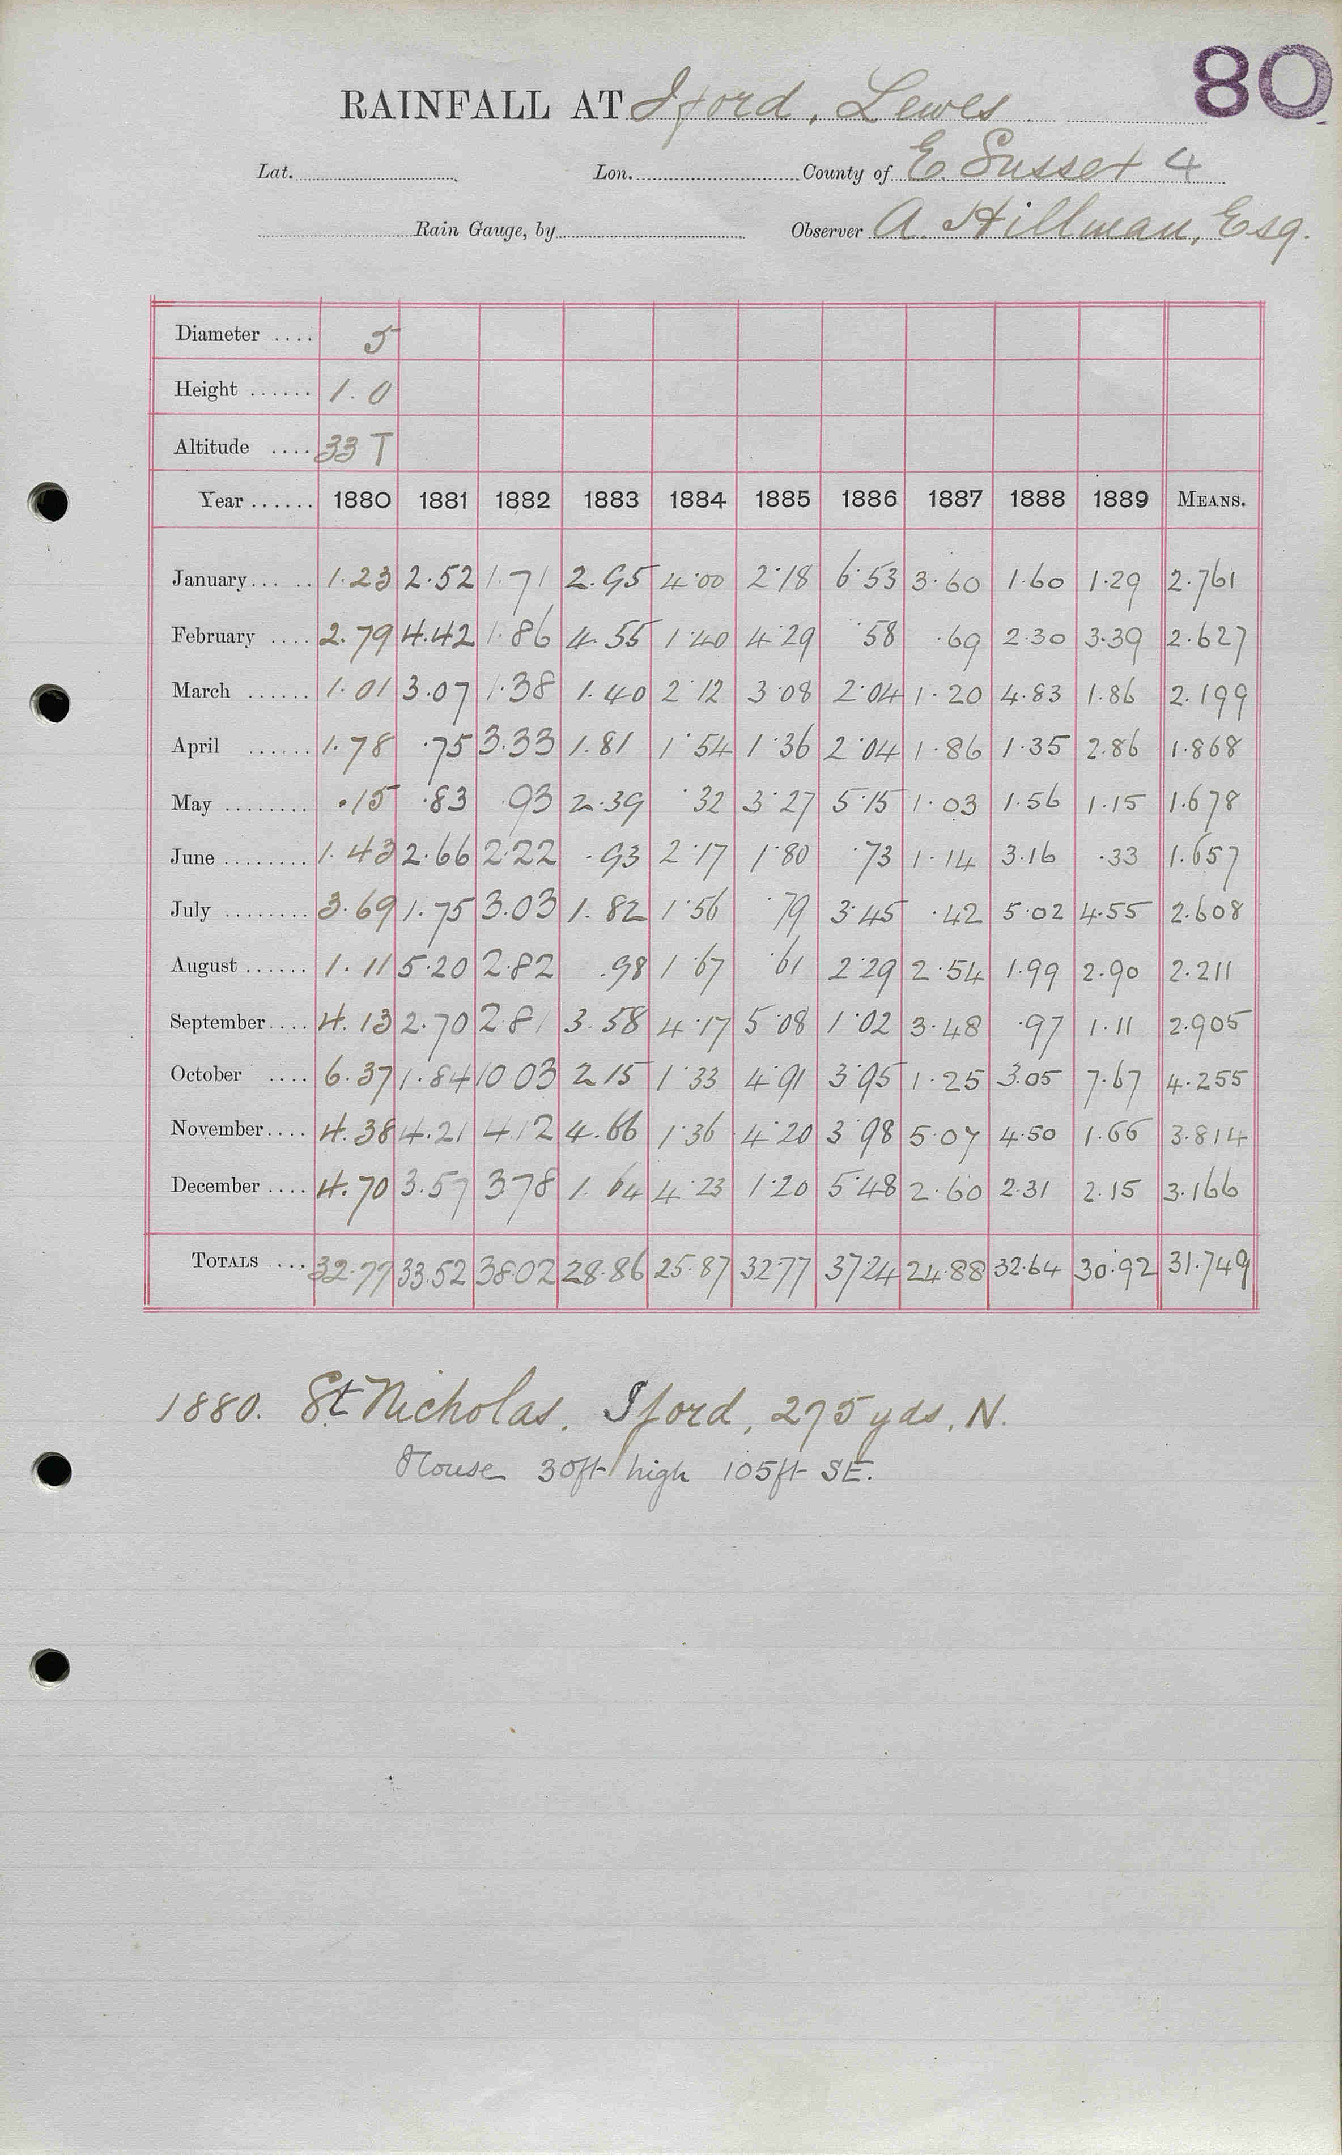 80
RAINFALL AT Iford, Lewes
Lat. Lon. County of E. Sussex 4
Rain Gauge, by Observer A. Hillman, Esq.
Diameter .... 5
Height ...... 1.0
Altitude .... 33 T
Year ...... 1880 1881 1882 1883 1884 1885 1886 1887 1888 1889 MEANS.
January...... 1.23 2.52 1.71 2.95 4.00 2.18 6.53 3.60 1.60 1.29 2.761
February .... 2.79 4.42 1.86 4.55 1.40 4.29 .58 .69 2.30 3.39 2.627
March ...... 1.01 3.07 1.38 1.40 2.12 3.08 2.04 1.20 4.83 1.86 2.199
April ...... 1.78 .75 3.33 1.81 1.54 1.36 2.04 1.86 1.35 2.86 1.868
May ........ .15 .83 .93 2.39 .32 3.27 5.15 1.03 1.56 1.15 1.678
June ........ 1.43 2.66 2.22 .93 2.17 1.80 .73 1.14 3.16 .33 1.657
July ........ 3.69 1.75 3.03 1.82 1.56 .79 3.45 .42 5.02 4.55 2.608
August ...... 1.11 5.20 2.82 .98 1.67 .61 2.29 2.54 1.99 2.90 2.211
September.... 4.13 2.70 2.81 3.58 4.17 5.08 1.02 3.48 .97 1.11 2.905
October .... 6.37 1.84 10.03 2.15 1.33 4.91 3.95 1.25 3.05 7.67 4.255
November.... 4.38 4.21 4.12 4.66 1.36 4.20 3.98 5.07 4.50 1.66 3.814
December .... 4.70 3.57 3.78 1.64 4.23 1.20 5.48 2.60 2.31 2.15 3.166
TOTALS .... 32.77 33.52 38.02 28.86 25.87 32.77 37.24 24.88 32.64 30.92 31.749
1880. St Nicholas, Iford, 275 yds. N.
House 30ft high 105ft SE.